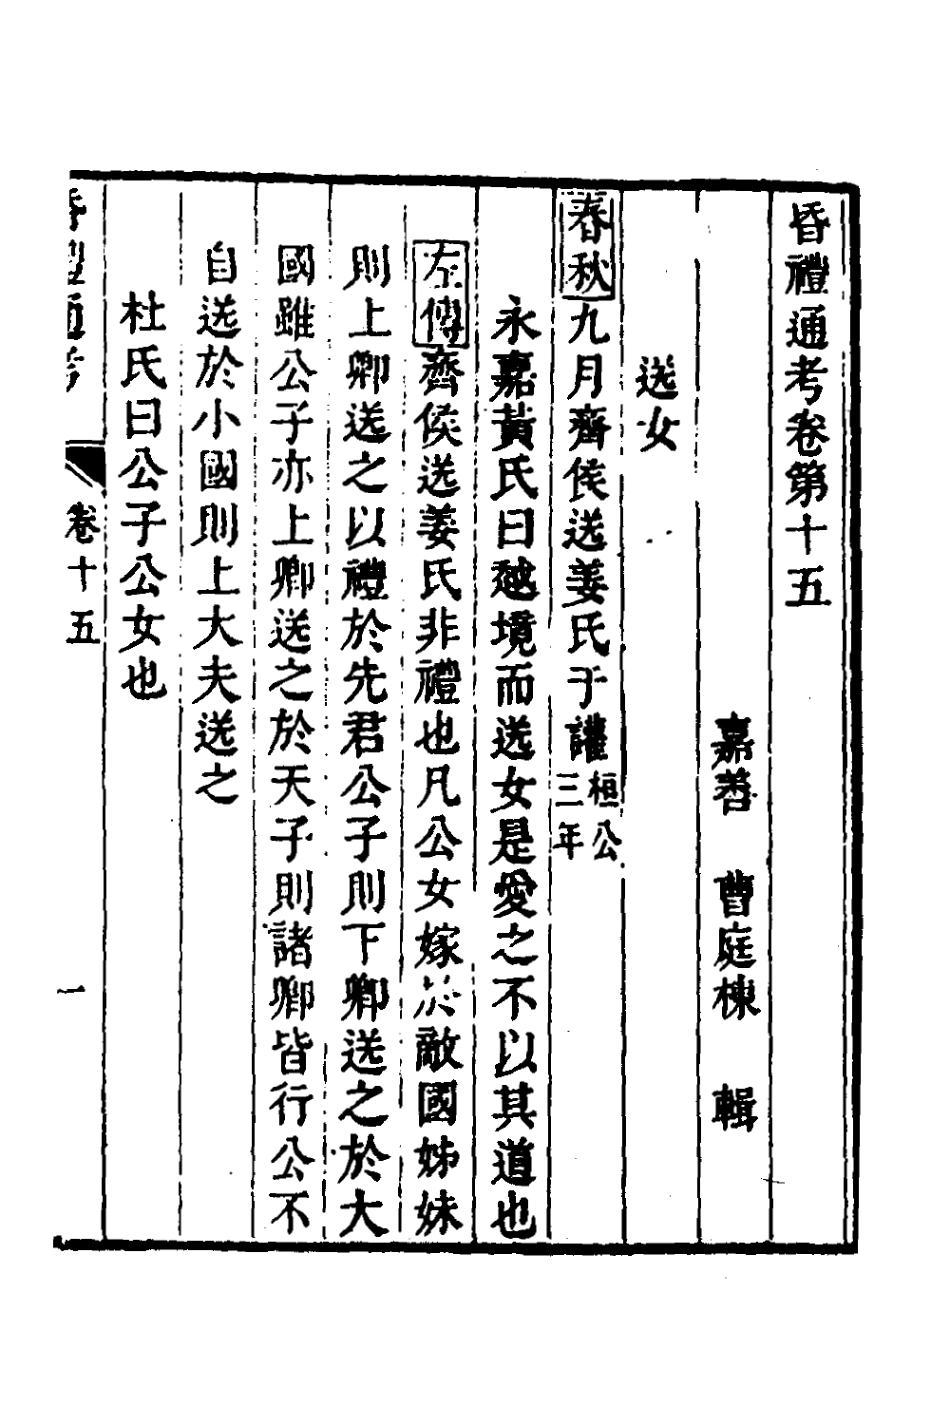 昏禮通考卷第十五
嘉善　曹庭棟　輯
送女
春秋九月齊侯送姜氏于讙桓公三年
永嘉黃氏曰越境而送女是愛之不以其道也
左傳齊侯送姜氏非禮也凡公女嫁於敵國姊妹
則上卿送之以禮於先君公子則下卿送之於大
國雖公子亦上卿送之於天子則諸卿皆行公不
自送於小國則上大夫送之
杜氏曰公子公女也
昏禮通考　卷十五　一